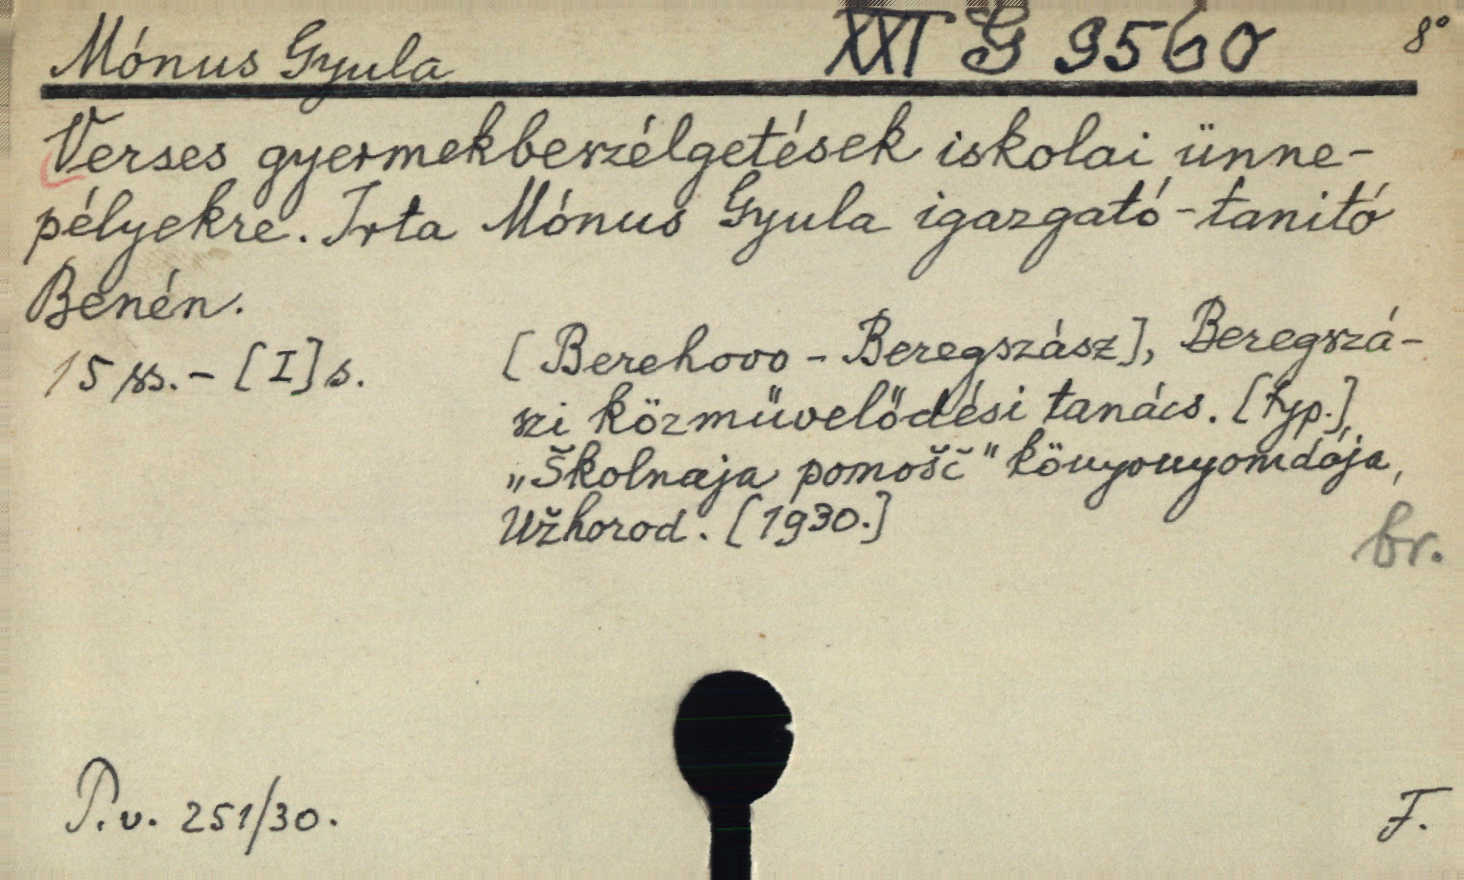 Mónus Gyula XXI G 9560 8°
Verses gyermekbeszélgetések iskolai ünne-
pélyekre. Irta Mónus Gyula igazgató-tanitó
Benén.
15 ss. - [I] s. [Berehovo - Beregszász], Beregszá-
szi közművelődési tanács. [typ.],
„Školnaja pomošč" könyvnyomdája,
Užhorod. [1930.]
br.
P.v. 251/30. F.